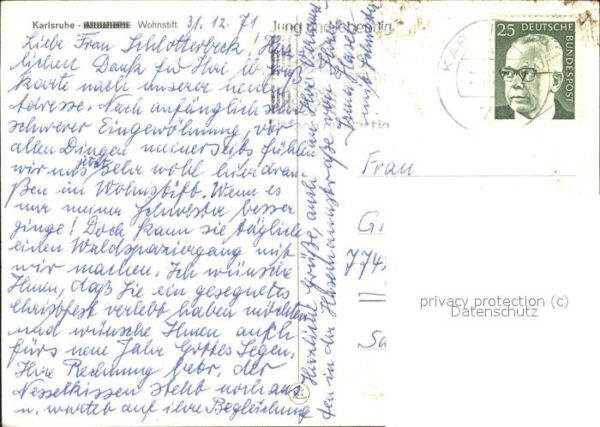 Karlsruhe - Wohnstift 31.12.71
Liebe Frau Schlotterbeck, Herz-
lichen Dank für Ihre lb. Gruß-
karte nach unserer neuen
Adresse. Nach anfänglich sehr
schwerer Eingewöhnung, vor
allen Dingen meinerseits fühlen
wir uns jetzt sehr wohl hier drau-
ßen im Wohnstift. Wenn es
nur meiner Schwester besser
ginge! Doch kann sie täglich
einen Waldspaziergang mit
mir machen. Ich wünsche
Ihnen, daß Sie ein gesegnetes
Christfest verlebt haben möchten
und wünsche Ihnen auch
fürs neue Jahr Gottes Segen.
Ihre Rechnung betr. der
Nesselkissen steht noch aus
u. wartet auf ihre Begleichung
Herzliche Grüße, auch an Ihre
den in der straße von Ihrer
Jung
25 DEUTSCHE
BUNDESPOST
KAR
Frau
G
774
Sa
privacy protection (c)
Datenschutz